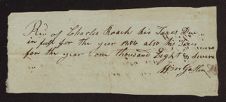 Rd of Charles Roach his Taxes Due
in full for the year 1806 also his Taxes
for the year one thousand Eight